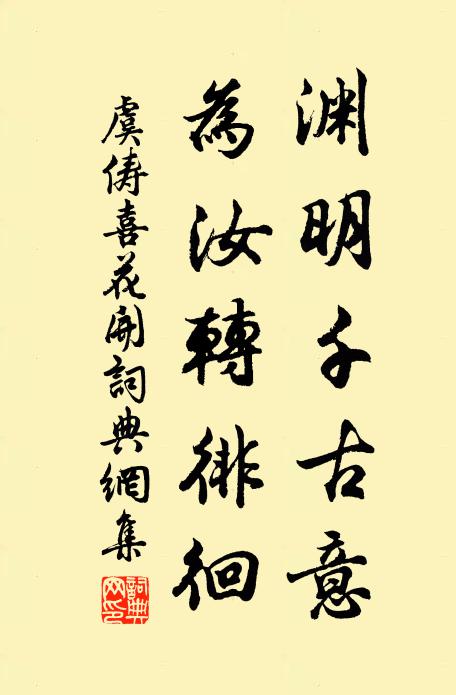 渊明千古意
為汝轉徘徊
虞俦喜花開詞典網集
詞典網印